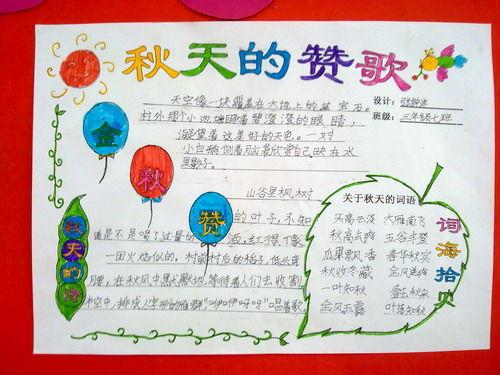 秋天的赞歌
设计:
班级: 三年级七班
天空像一块覆盖在大地上的蓝宝石。
村外那个小池塘睁着碧澄澄的眼睛,
凝望着这美好的天色。一对
小白鹅侧着尾欣赏自己映在水
里影子。
山谷里枫树
的叶子,不知
道是不是喝了过量的酒,红得像
一团火似的。村前村后的稻子,低头弯
腰,在秋风中默默地等待着人们去收割
空中,排成人字形的雁群"咿咿呀呀"唱着歌。
金
秋
赞
秋天的诗
关于秋天的词语
天高云淡 大雁南飞
秋高气爽 五谷丰登
瓜果飘香 春华秋实
秋收冬藏 金风送爽
一叶知秋
金风玉露 叶落知秋
词海拾贝